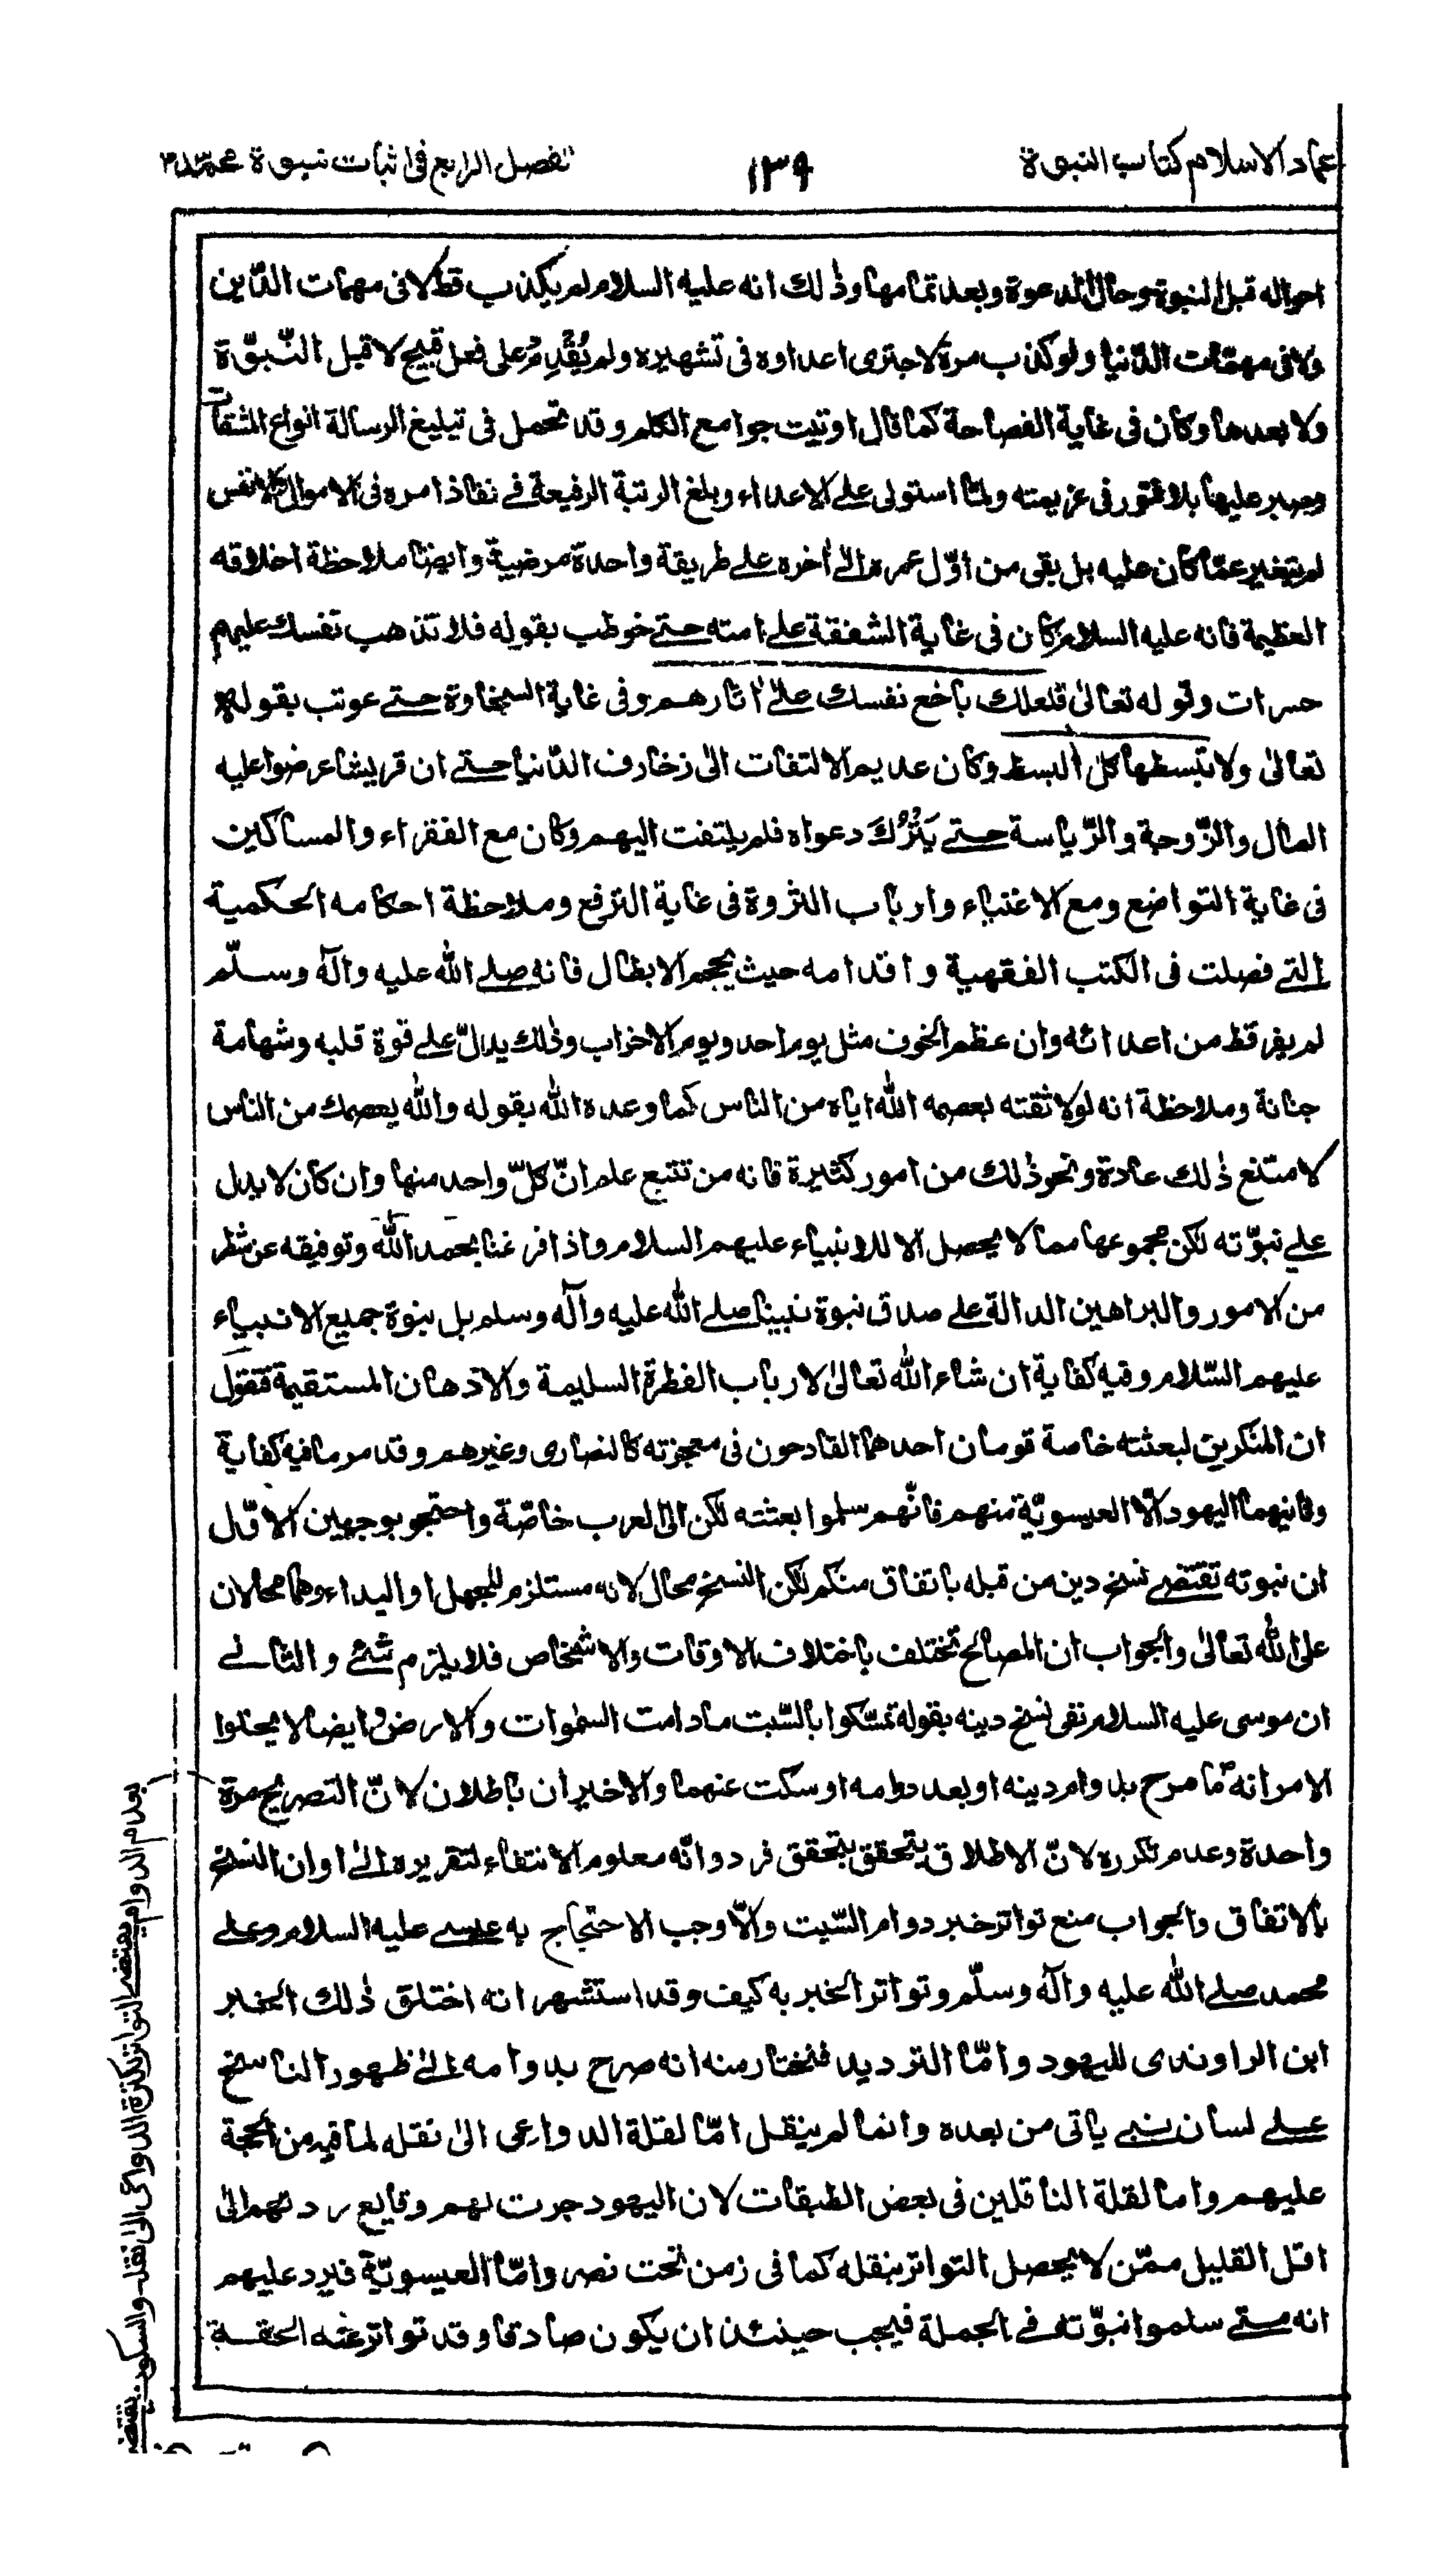 عماد الاسلام كتاب النبوة
١٣٩
تفصل الرابع فى اثبات نبوة محمد
احواله قبل النبوة وحال الدعوة وبعد تمامها وذلك انه عليه السلام لم يكذب قط لا فى مهمات الدّين
ولا فى مهمّات الدّنيا ولو كذب مرة لاجترى اعداوه فى تشهيره ولم يُقْدِمْ على فعل قبيح لا قبل النّبوّة
ولا بعدها وكان فى غاية الفصاحة كما قال اوتيت جوامع الكلم وقد تحمل فى تبليغ الرسالة انواع المشقات
وصبر عليها بلا فتور فى عزيمته ولما استولى على الاعداء وبلغ الرتبة الرفيعة فے نفاذ امره فى الاموال والانفس
لم يتغير عمّا كان عليه بل بقى من اوّل عمره الى اخره على طريقة واحدة مرضية وايضا ملاحظة اخلاقه
العظيمة فانه عليه السلام كان فى غاية الشفقة على امته حتے خوطب بقوله فلا تذهب نفسك عليهم
حسرات وقوله تعالىٰ فلعلك باخع نفسك علىٰ اثارهم وفى غاية السخاوة حتے عوتب بقوله
تعالىٰ ولا تبسطها كل البسط وكان عديم الالتفات الىٰ زخارف الدّنيا حتے ان قريشا عرضوا عليه
المال والزّوجة والرّياسة حتے يَتْرُكَ دعواه فلم يلتفت اليهم وكان مع الفقراء والمساكين
فى غاية التواضع ومع الاغنياء وارباب الثروة فى غاية الترفع وملاحظة احكامه الحكمية
التے فصلت فى الكتب الفقهية واقدامه حيث يحجم الابطال فانه صلے الله عليه وآله وسلّم
لم يفر قط من اعدائه وان عظم الخوف مثل يوم احد ويوم الاحزاب وذلك يدلّ على قوة قلبه وشهامة
جنانة وملاحظة انه لولا ثقته بعصمه الله اياه من الناس كما وعده الله بقوله والله يعصمك من الناس
لامتنع ذٰلك عادة ونحو ذلك من امور كثيرة فانه من تتبع علم انّ كلّ واحد منها وان كان لا يدل
علے نبوّته لكن مجموعها مما لا يحصل الا للانبياء عليهم السلام واذا فرغنا بحمد الله وتوفيقه عن شطر
من الامور والبراهين الدالة على صدق نبوة نبينا صلے الله عليه وآله وسلم بل نبوة جميع الانبياء
عليهم السّلام وفيه كفاية ان شاء الله تعالىٰ لارباب الفطرة السليمة والاذهان المستقيمة فنقول
ان المنكرين لبعثته خاصة قومان احدهما القادحون فى معجزته كالنصارى وغيرهم وقد مر ما فيه كفاية
وثانيهما اليهود الّا العيسويّة منهم فانّهم سلموا بعثته لكن الى العرب خاصّة واحتجو بوجهين الاوّل
ان نبوته تقتضے نسخ دين من قبله باتفاق منكم لكن النسخ محال لانه مستلزم للجهل او البداء وهما محالان
على الله تعالىٰ والجواب ان المصالح تختلف باختلاف الاوقات والاشخاص فلا يلزم شئ والثانے
ان موسى عليه السلام نفى نسخ دينه بقوله تمسّكوا بالسّبت مادامت السموات والارض وايضا لا يخلوا
الامر انه امّا صرح بدوام دينه او بعد دوامه او سكت عنهما والاخيران باطلان لانّ التصريح مرة
واحدة وعدم تكرره لانّ الاطلاق يتحقق بتحقق فرد وانّه معلوم الانتفاء لتقريره الىٰ اوان النسخ
بالاتفاق والجواب منع تواتر خبر دوام السّبت والّا وجب الاحتجاج به عيسے عليه السلام وعلى
محمد صلے الله عليه وآله وسلّم وتواتر الخبر به كيف وقد استشهر انه اختلق ذٰلك الخبر
ابن الراوندى لليهود وامّا الترديد فنختار منه انه صرح بدوامه الىٰ ظهور الناسخ
علے لسان نبے ياتى من بعده وانما لم ينقل امّا لقلة الدواعى الىٰ نقله لما فيه من الحجة
عليهم واما لقلة الناقلين فى بعض الطبقات لان اليهود جرت لهم وقايع ردتهم الى
اقل القليل ممّن لا يحصل التواتر بنقله كما فى زمن بخت نصر وامّا العيسويّة فيرد عليهم
انه متے سلموا نبوّته فے الجملة فيجب حينئذ ان يكون صادقا وقد تواتر عنه الحقة
بعدم الدوام يقتضے التواتر لكثرة الدواعى الى نقله والسكوت يقتضے